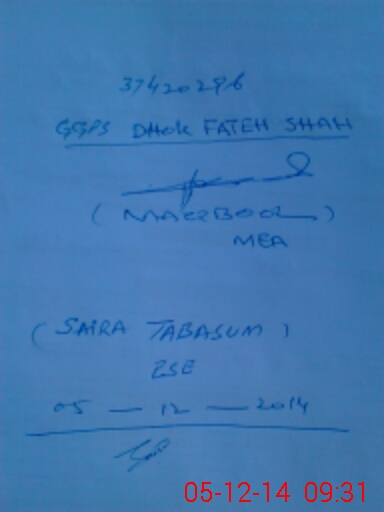 37420296
GGPS DHOK FATEH SHAH
(MAQBOOL)
MEA
(SAIRA TABASUM)
ESE
05 — 12 — 2014
05-12-14 09:31